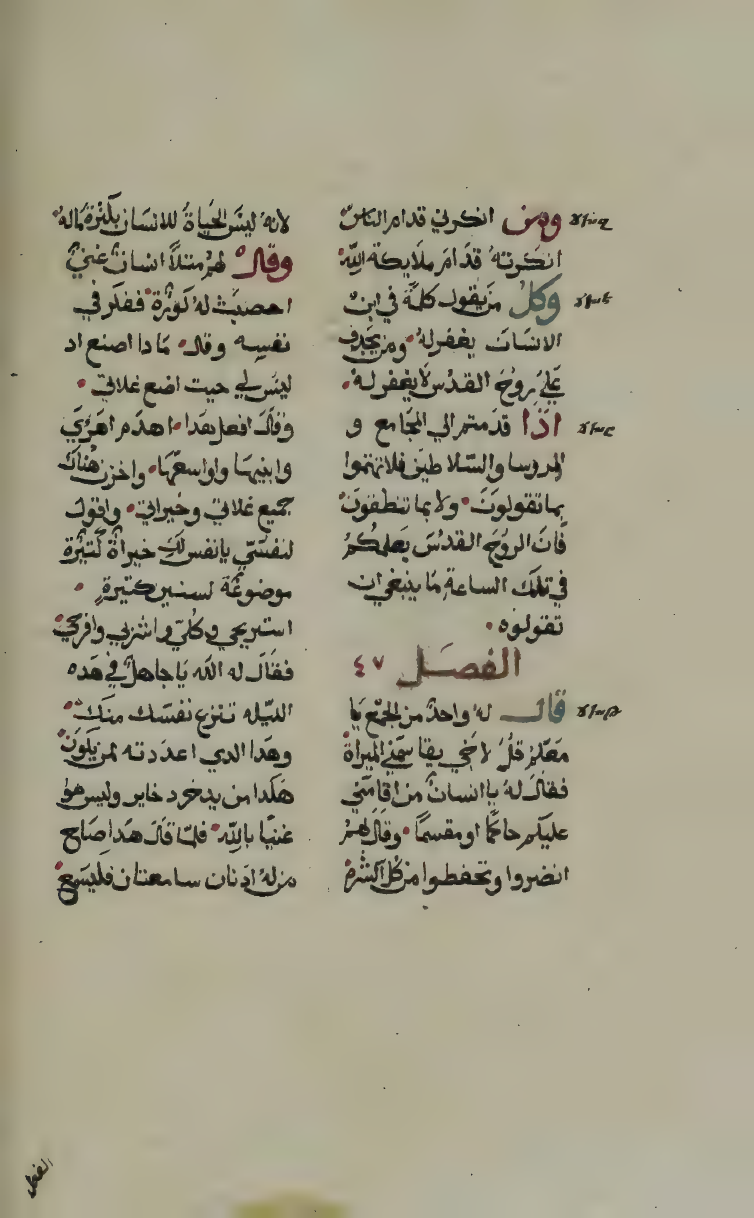 ومن انكرني قدام الناس
انكرته قدام ملايكة الله
وكل من يقول كلمة في ابن
الانسان يغفر له ومن يجدف
علي روح القدس لا يغفر له
اذا قدمتم الي المجامع و
الروسا والسلاطين فلا تهتموا
بما تقولون ولا بما تنطقون
فان الروح القدس يعلمكم
في تلك الساعة ما ينبغي ان
تقولوه
الفصل ٤٧
قال له واحد من الجمع يا
معلم قل لاخي يقاسمني الميراة
فقال له يا انسان من اقامني
عليكم حاكما او مقسما وقال لهم
انضروا وتحفطوا من كل الشره
لانه ليس الحياة للانسان بكثرة ماله
وقال لهم متلا انسان غني
اخصبت له كورة ففكر في
نفسه وقال مادا اصنع اد
ليس لي حيت اضع غلاتي
وقال افعل هدا اهدم اهري
وابنيها واواسعها واخزن هناك
جميع غلاتي وخيراتي واقول
لنفسي يا نفس لك خيراة كتيرة
موضوعة لسنين كتيرة
استريحي وكلي واشربي وافرحي
فقال له الله يا جاهل في هده
الليله تنزع نفسك منك
وهدا الدي اعددته لمن يكون
هكدا من يدخر دخاير وليس هو
غنيا بالله فلما قال هدا صاح
من له ادنان سامعتان فليسمع